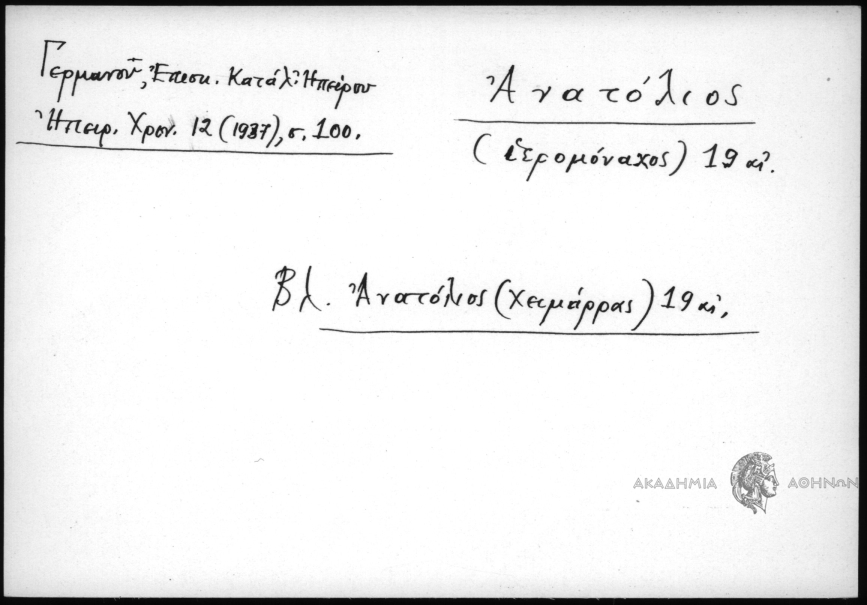 Γερμανοῦ, Ἐπισκ. Κατάλ. Ἠπείρου
Ἠπειρ. Χρον. 12 (1937), σ. 100.
Ἀνατόλιος
(ἱερομόναχος) 19 αἰ.
Βλ. Ἀνατόλιος (Χειμάρρας) 19 αἰ.
ΑΚΑΔΗΜΙΑ ΑΘΗΝΩΝ